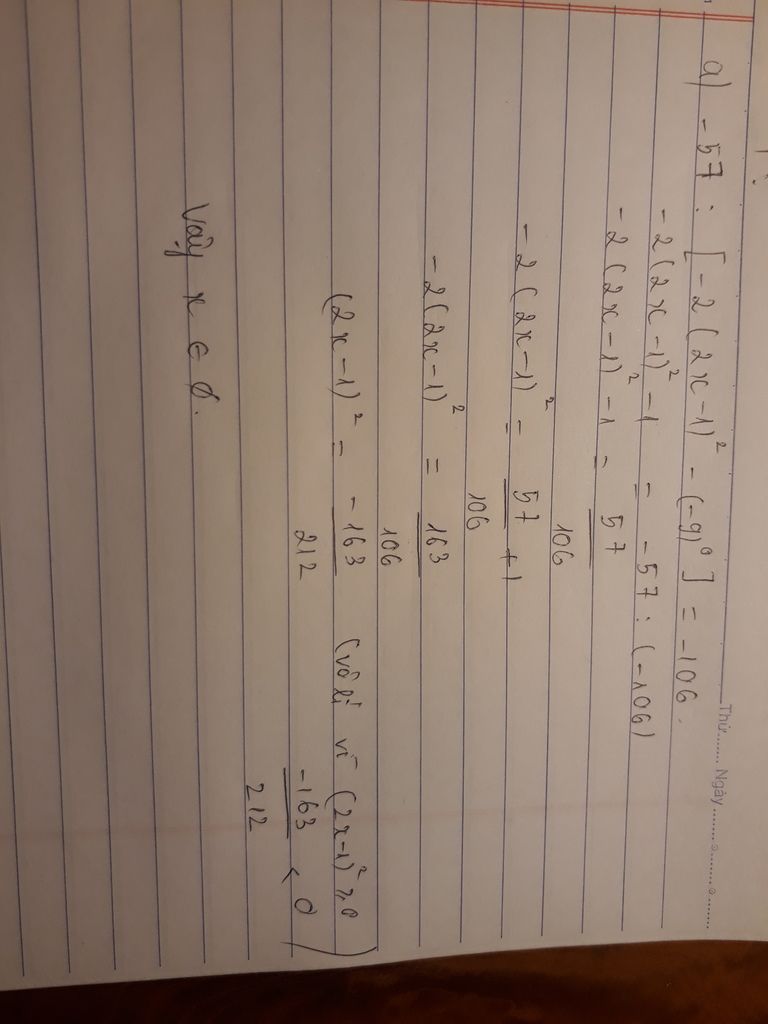 Thứ........ Ngày ........
a) -57 : [-2(2x-1)² - (-9)⁰] = -106.
-2(2x-1)² -1 = -57 : (-106)
-2(2x-1)² -1 = 57
106
-2(2x-1)² = 57 +1
106
-2(2x-1)² = 163
106
(2x-1)² = -163 (vô lí vì (2x-1)² ≥ 0
212 -163 < 0 )
212
Vậy x ∈ ∅.